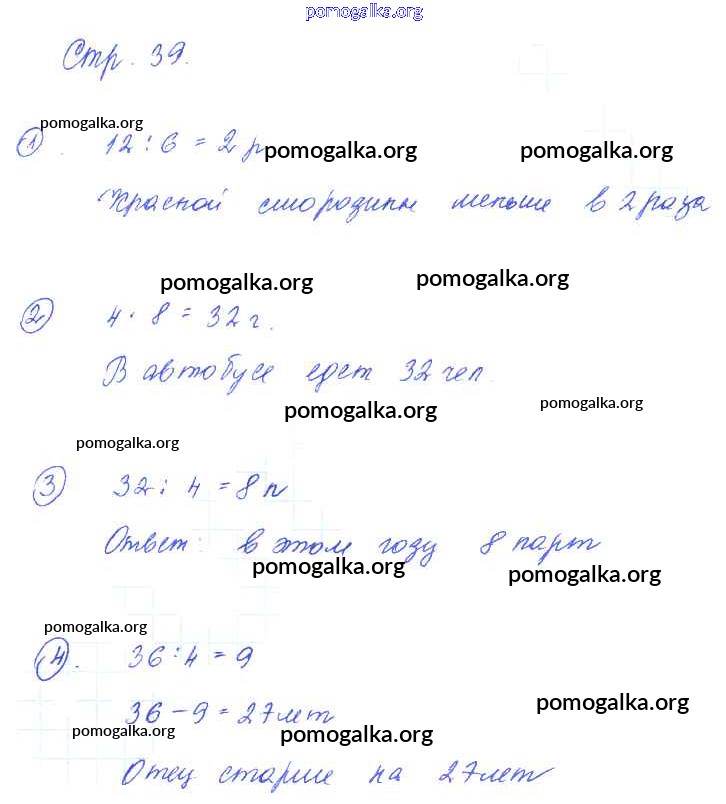 pomogalka.org
Стр. 39.
pomogalka.org
① . 12 : 6 = 2 р pomogalka.org pomogalka.org
Красной смородины меньше в 2 раза
pomogalka.org pomogalka.org
② 4 · 8 = 32 г.
В автобусе едет 32 чел.
pomogalka.org pomogalka.org
pomogalka.org
③ 32 : 4 = 8 п
Ответ: в этом году 8 парт
pomogalka.org pomogalka.org
pomogalka.org
④. 36 : 4 = 9
pomogalka.org
36 - 9 = 27 лет
pomogalka.org pomogalka.org
Отец старше на 27 лет